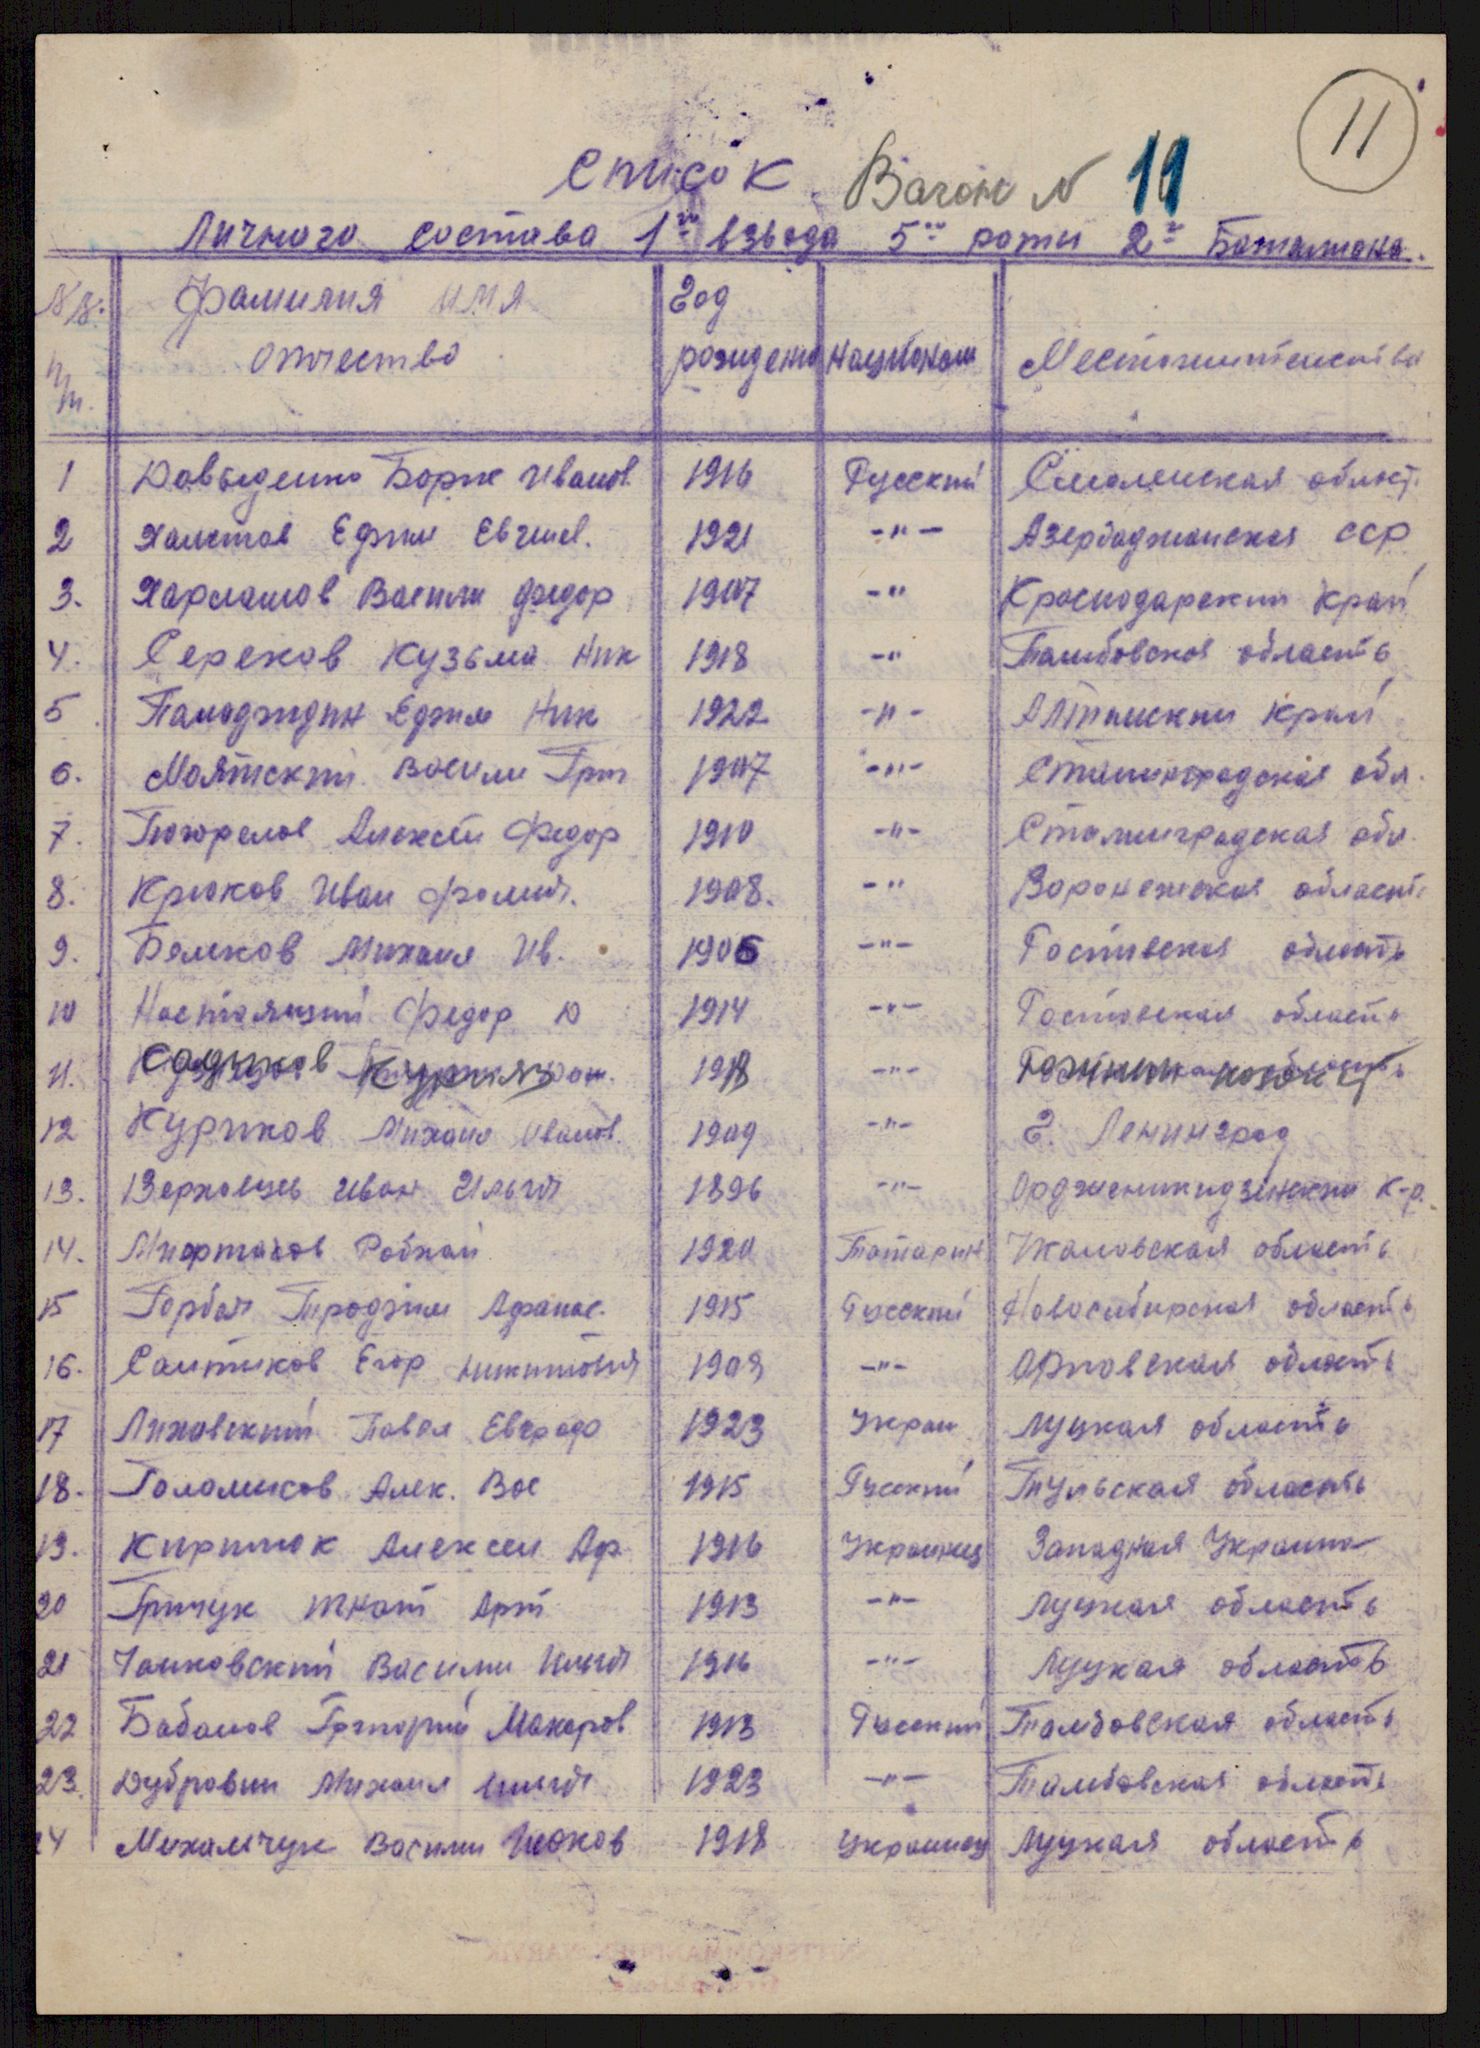 11
Список Вагон N 19
Личного состава 1го взвода 5ой роты 2го Баталиона.
N/N. Фамилия имя Год
отчество рождени Национал Местожительства
п/п.
1 Давыденко Борис Иванов. 1916 Русский Смоленская област.
2 Халстов Ефим 1921 -"- Азербаджанская ССР
3. Харламов Васили Федор 1907 -" Краснодарский край
4. Серехов Кузьма Ник 1918 -" Тамбовская область
5 Ефим Ник 1922 -"- Алтаиский край
6. Моятский Васили Григ 1907 -"- Сталинградская обл.
7. Погорелов Алексей Федор 1910 -"- Сталинградская обл.
8. Крюков Иван 1908. -" Воронежская область
9. Белков Михаил Ив. 1906 -"- Ростовская область
10 Настоящий Федор Ю 1914 -"- Ростовская область
11. Садыков 1918 -"-
12 Куриков Михаил Иванов. 1909 -"- г. Ленинград
13. Верховцев Иван Ильич 1896 -"- Орджени­кидзенский к-р.
14. Мифтахов 1920 Татарин Чкаловская область
15 Горбач Трофим Афанас. 1915 Русский Новосибирская область
16. Сантиков Егор Никитович 1909 -"- Орловская область
17 Лиховский Павел Евграф 1923 Украи Луцкая область
18. Голомисов Алек. Вас 1915 Русский Тульская область
19. Кирилюк Алексеи Аф. 1916 Украинец Западная Украина
20 Гричук Игнат Арт 1913 -"- Луцкая область
21 Чайковский Васили Ильич 1916 -"- Луцкая область
22 Бабанов Григорий Макаров 1913 Русский Тамбовская область
23. Дубровин Михаил Ильич 1923 -"- Тамбовская область
24 Михальчук Васили Исаков 1918 Украинец Луцкая область